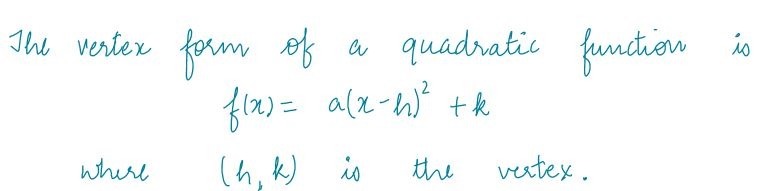 The vertex form of a quadratic function is
f(x) = a(x-h)² + k
where (h, k) is the vertex.